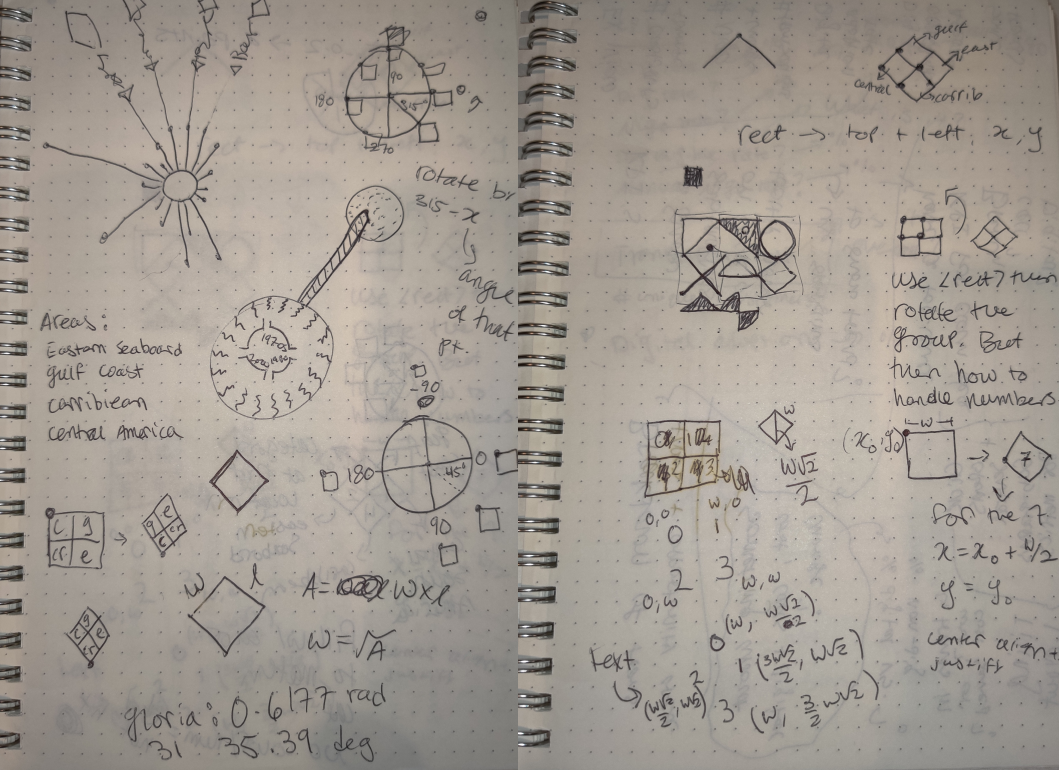 90
180
0
315°
270
rotate by
315 - x
angle
of that
pt.
1970s
Areas:
Eastern Seaboard
gulf coast
carribiean
central America
-90
180
0
45°
90
c g
cr e
g e
c cr
g
c e
cr
w l
A = w x l
w = √A
gloria: 0.6177 rad
31 35.39 deg
gulf
east
central
carrib
rect → top + left: x, y
use <rect> then
rotate the
group. But
then how to
handle numbers
w
w√2
2
w
(x₀, y₀)
7
for the 7
x = x₀ + w/2
y = y₀
center align +
justify
0,0
w,0
0
1
2
3
w,w
0,w
0 (w, w√2/2)
text
1 (3w√2/2, w√2)
2 (w√2/2, w√2)
3 (w, 3/2 w√2)